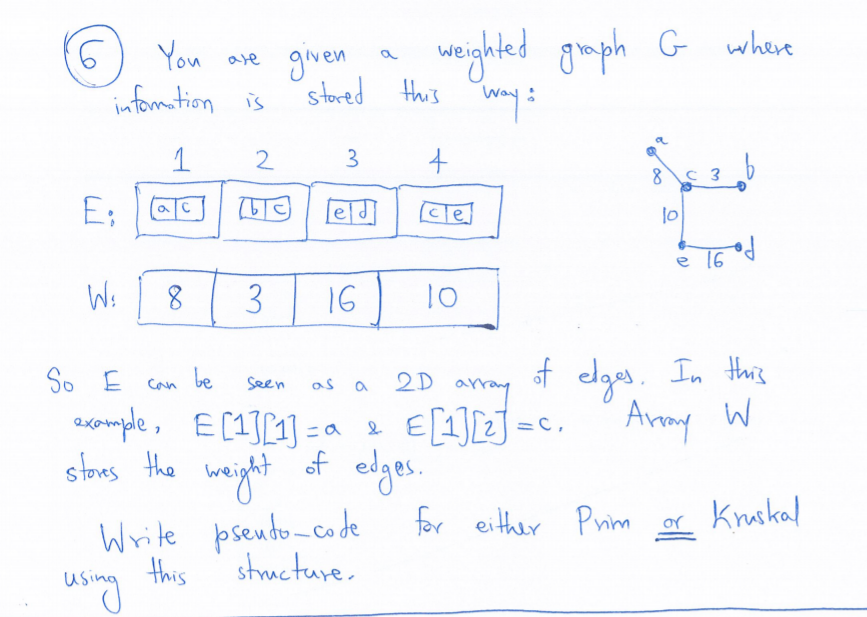 6 You are given a weighted graph G where
infomation is stored this way:
1 2 3 4
E: a c b c e d c e
W: 8 3 16 10
a
8 c 3 b
10
e 16 d
So E can be seen as a 2D array of edges. In this
example, E[1][1]=a & E[1][2]=c. Array W
stores the weight of edges.
Write pseudo-code for either Prim or Kruskal
using this structure.